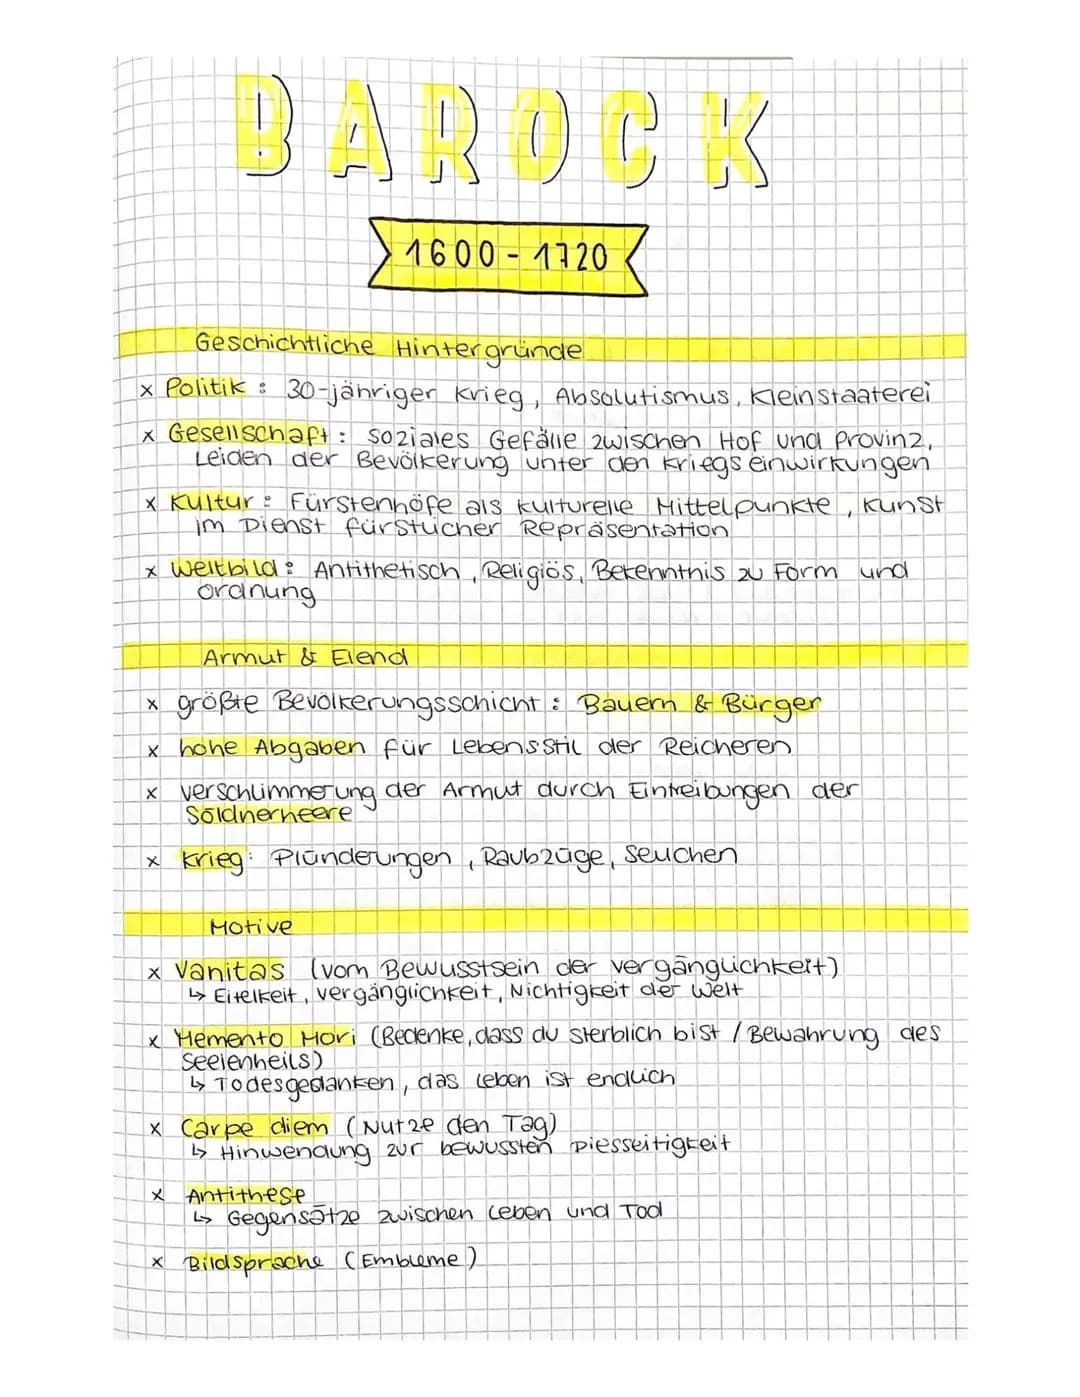 BAROCK
1600 - 1720
Geschichtliche Hintergründe
x Politik : 30-jähriger Krieg, Absolutismus, Kleinstaaterei
x Gesellschaft : soziales Gefälle zwischen Hof und Provinz,
Leiden der Bevölkerung unter den Kriegseinwirkungen
x Kultur : Fürstenhöfe als kulturelle Mittelpunkte, Kunst
im Dienst fürstlicher Repräsentation
x Weltbild : Antithetisch, Religiös, Bekenntnis zu Form und
Ordnung
Armut & Elend
x größte Bevölkerungsschicht : Bauern & Bürger
x hohe Abgaben für Lebensstil der Reicheren
x Verschlimmerung der Armut durch Eintreibungen der
Söldnerheere
x Krieg: Plünderungen, Raubzüge, Seuchen
Motive
x Vanitas (vom Bewusstsein der Vergänglichkeit)
↳ Eitelkeit, Vergänglichkeit, Nichtigkeit der Welt
x Memento Mori (Bedenke, dass du sterblich bist / Bewahrung des
Seelenheils)
↳ Todesgedanken, das Leben ist endlich
x Carpe diem (Nutze den Tag)
↳ Hinwendung zur bewussten Diesseitigkeit
x Antithese
↳ Gegensätze zwischen Leben und Tod
x Bildsprache (Embleme)